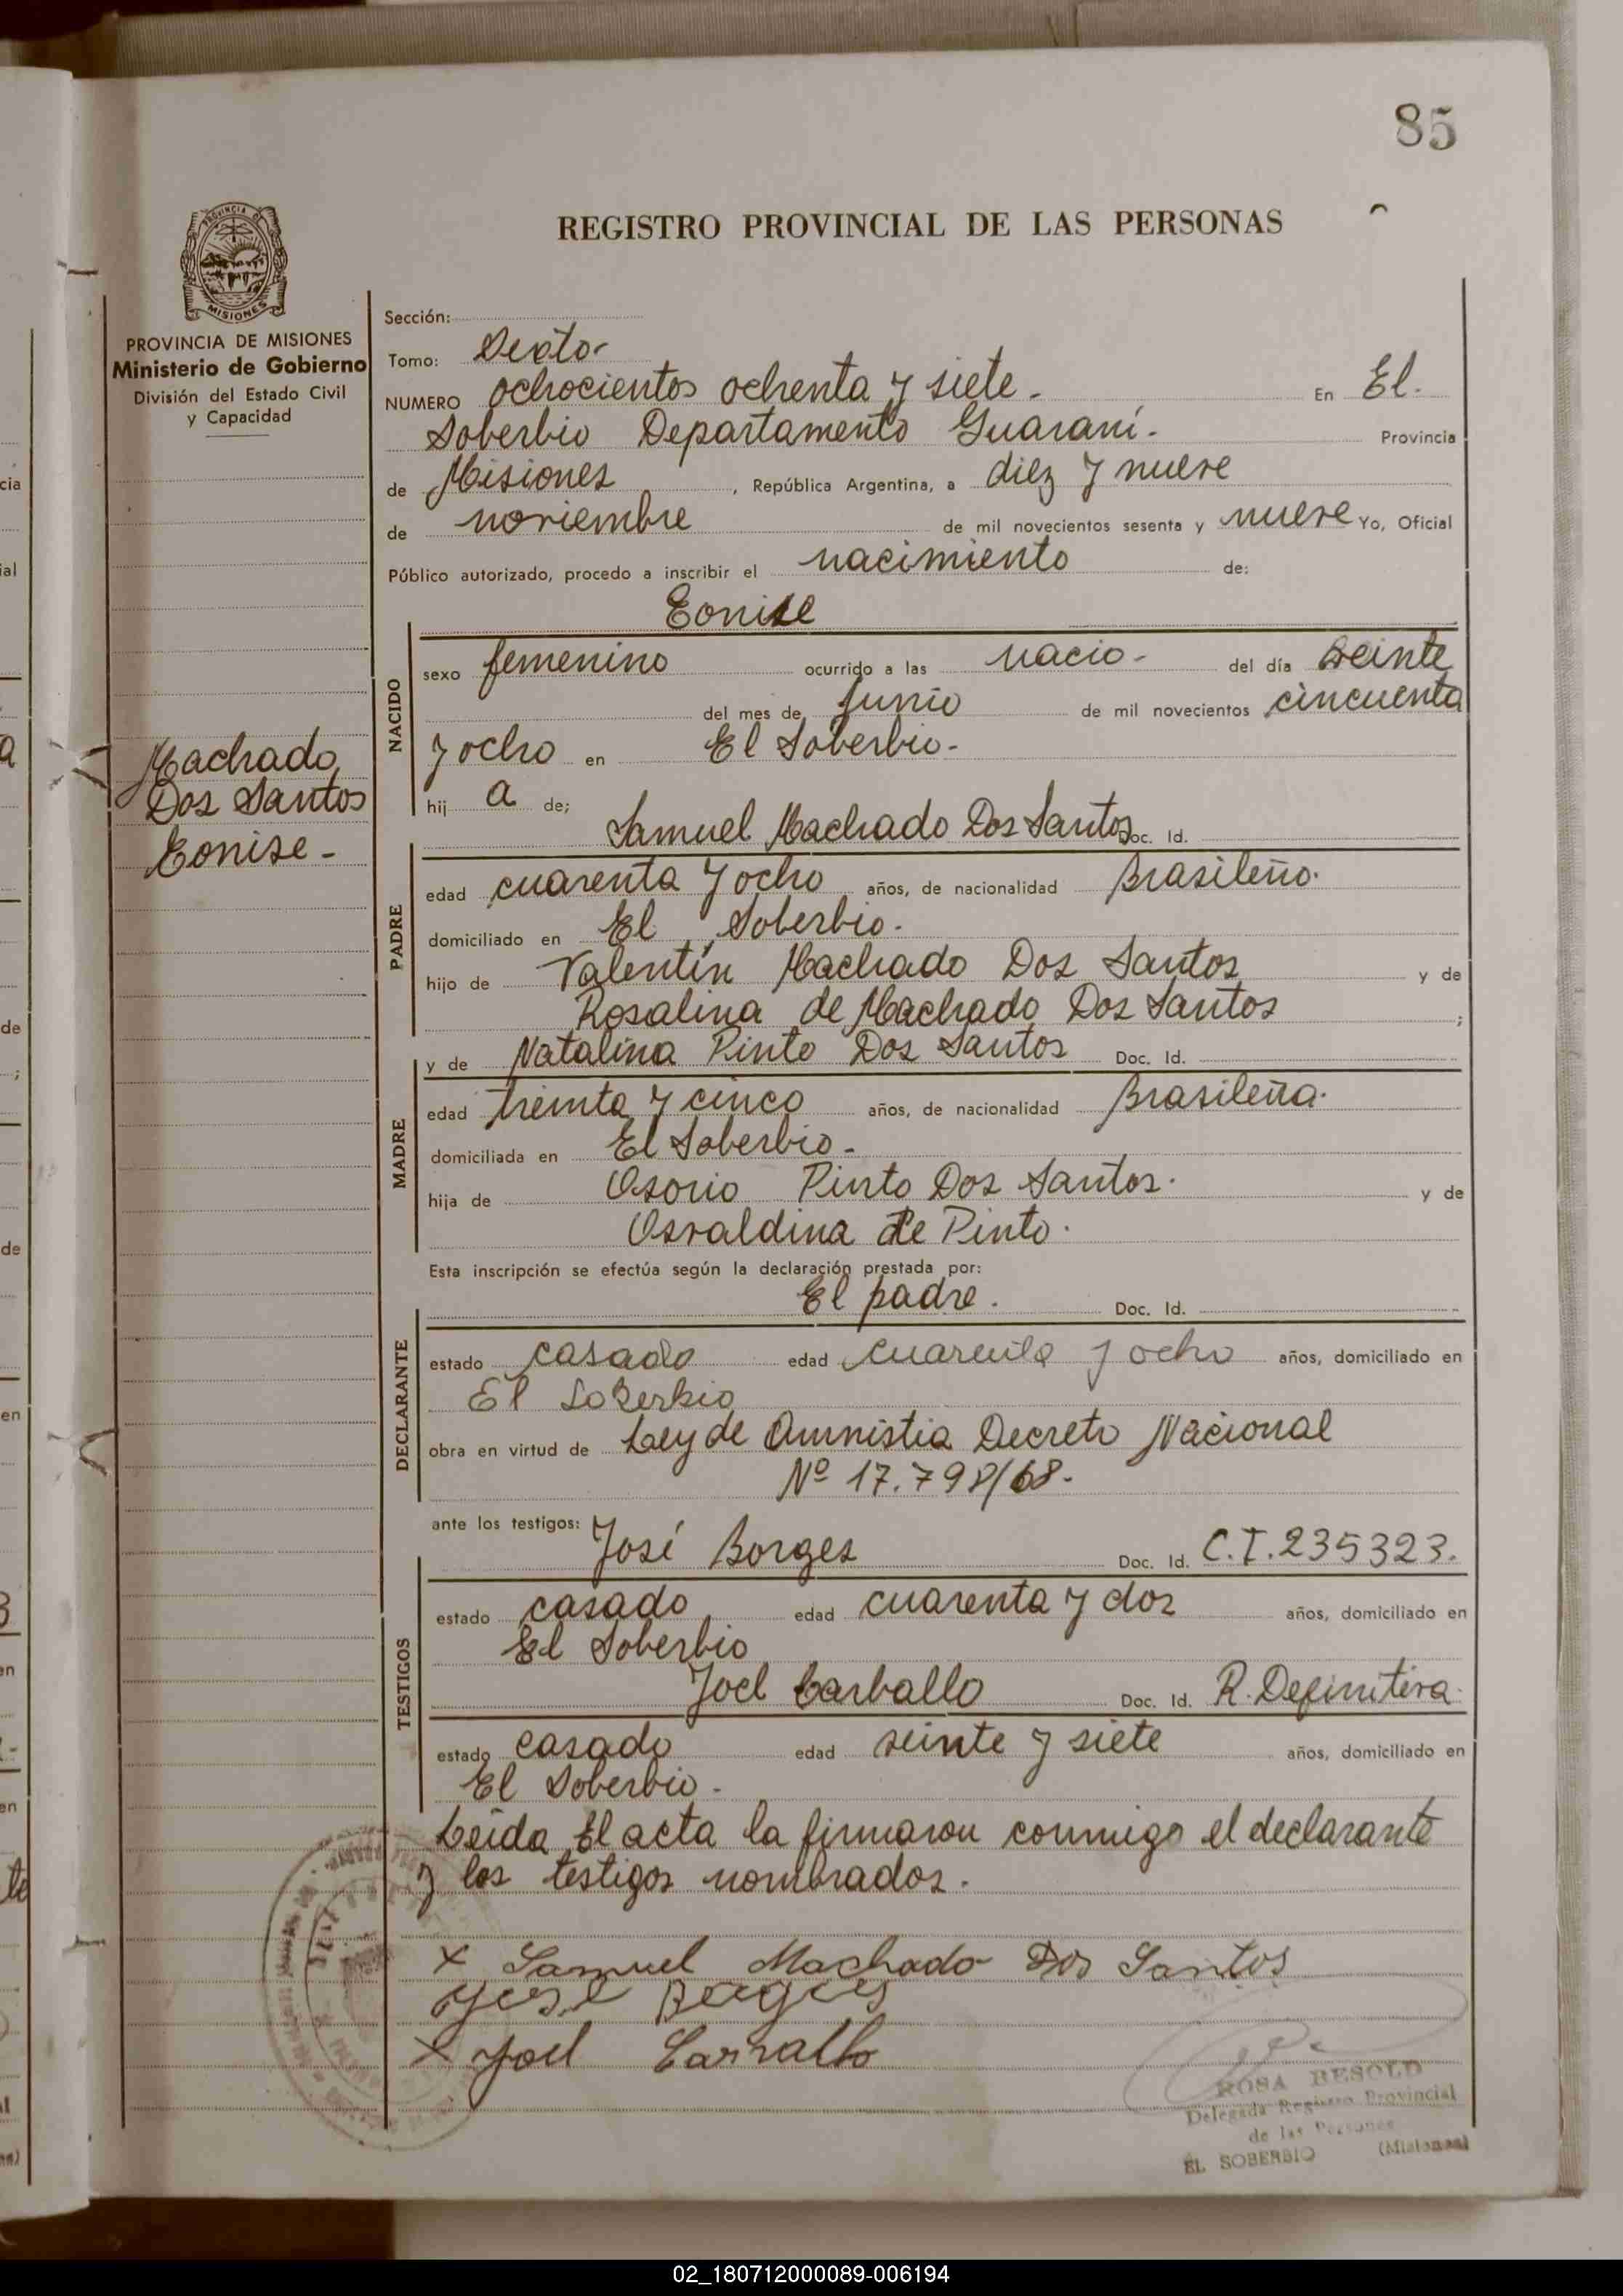 85
REGISTRO PROVINCIAL DE LAS PERSONAS
PROVINCIA DE
MISIONES
PROVINCIA DE MISIONES
Ministerio de Gobierno
División del Estado Civil
y Capacidad
Machado
Dos Santos
Eonise -
Sección:
Tomo: Sexto-
NUMERO ochocientos ochenta y siete - En El.
Soberbio Departamento Guaraní - Provincia
de Misiones, República Argentina, a diez y nueve
de noviembre de mil novecientos sesenta y nueve Yo, Oficial
Público autorizado, procedo a inscribir el nacimiento de:
Eonise
NACIDO
sexo femenino ocurrido a las nacio - del día veinte
del mes de Junio de mil novecientos cincuenta
y ocho en El Soberbio -
hij a de;
Samuel Machado Dos Santos Doc. Id.
PADRE
edad cuarenta y ocho años, de nacionalidad Brasileño.
domiciliado en El Soberbio.
hijo de Valentín Machado Dos Santos y de
Rosalina de Machado Dos Santos ;
y de Natalina Pinto Dos Santos Doc. Id.
MADRE
edad treinta y cinco años, de nacionalidad Brasileña.
domiciliada en El Soberbio -
hija de Osorio Pinto Dos Santos. y de
Osvaldina de Pinto.
Esta inscripción se efectúa según la declaración prestada por:
El padre. Doc. Id.
DECLARANTE
estado casado edad cuarenta y ocho años, domiciliado en
El Soberbio
obra en virtud de Ley de Amnistia Decreto Nacional
Nº 17.798/68.
ante los testigos: José Borges Doc. Id. C.I. 235323.
TESTIGOS
estado casado edad cuarenta y dos años, domiciliado en
El Soberbio
Joel Carballo Doc. Id. R. Definitiva.
estado casado edad veinte y siete años, domiciliado en
El Soberbio -
Leida El acta la firmaron conmigo el declarante
y los testigos nombrados.
x Samuel Machado Dos Santos
José
x Joel
ROSA BESOLD
Delegada Registro Provincial
de las Personas
EL SOBERBIO (Misiones)
02_180712000089-006194